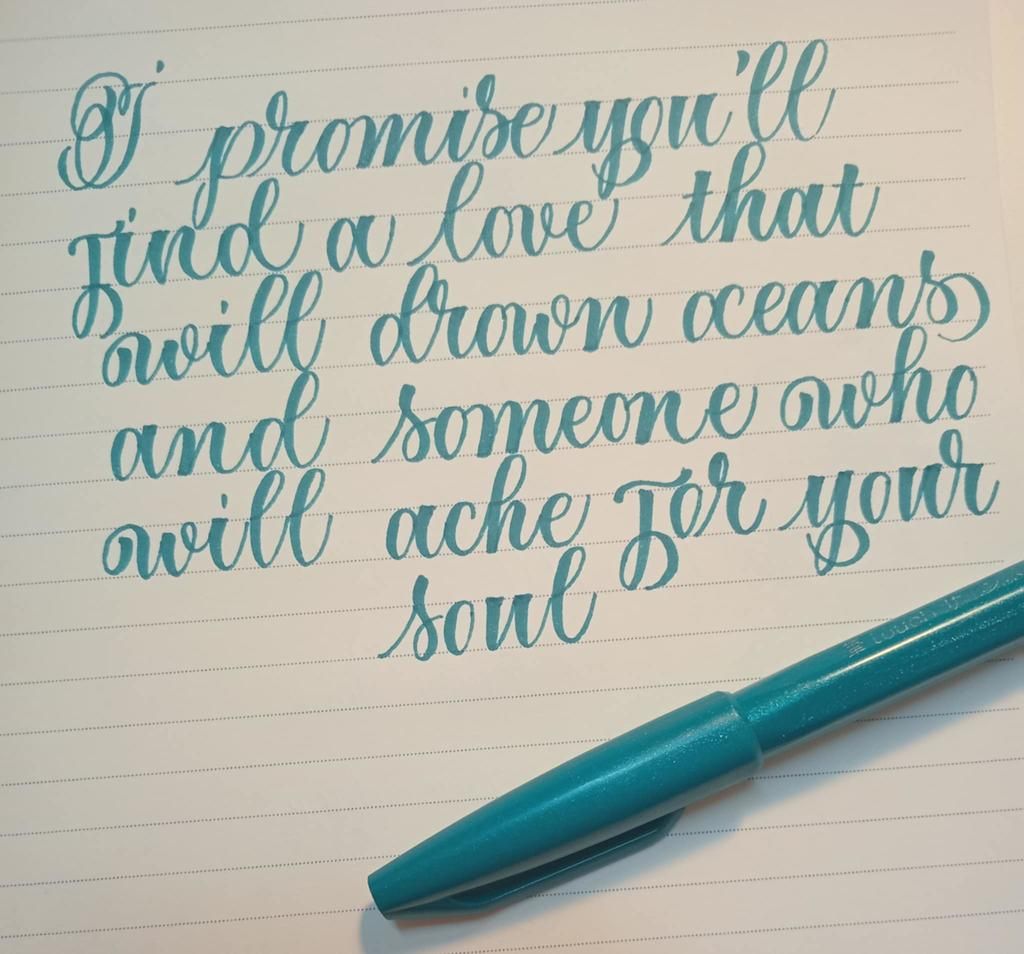 I promise you'll
find a love that
will drown oceans
and someone who
will ache for your
soul
touch